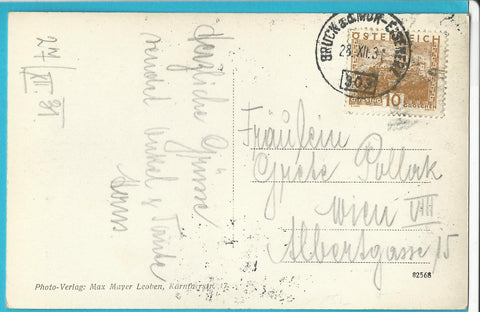 27/XII 31
Herzliche Grüsse
sendet Onkel & Tante
BRUCK a.d. MUR-EISENERZ
28.XII.31
303
ÖSTERREICH
GÜSSING 10 GROSCHEN
Fräulein
Grete Pollak
Wien VIII
Albertgasse 15
Photo-Verlag: Max Mayer Leoben, Kärntnerstr.
82568